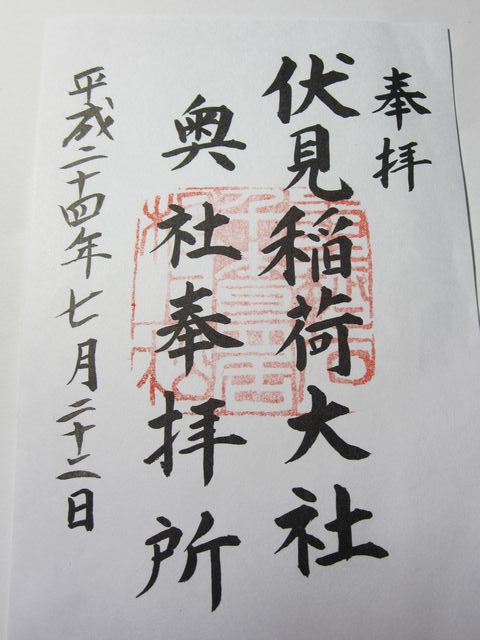 奉拝
伏見稲荷大社
奥社奉拝所
平成二十四年七月二十二日